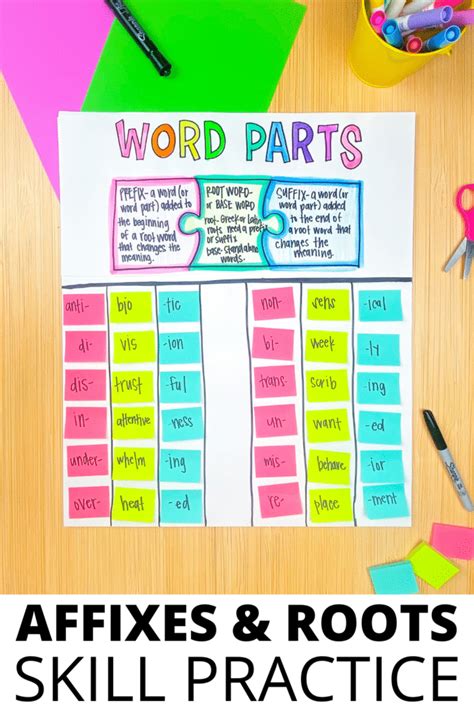 WORD PARTS
PREFIX- a word (or
word part) added to
the beginning
of a root word
that changes the
meaning.
ROOT WORD-
or BASE WORD
root- Greek or Latin
roots need a prefix
or suffix
base- stand alone
words.
SUFFIX- a word (or
word part) added
to the end of
a root word that
changes the
meaning.
anti- bio -tic non- sens -ical
di- vis -ion bi- week -ly
dis- trust -ful trans- scrib -ing
in- attentive -ness un- want -ed
under- whelm -ing mis- behave -ior
over- heat -ed re- place -ment
Sharpie
AFFIXES & ROOTS
SKILL PRACTICE